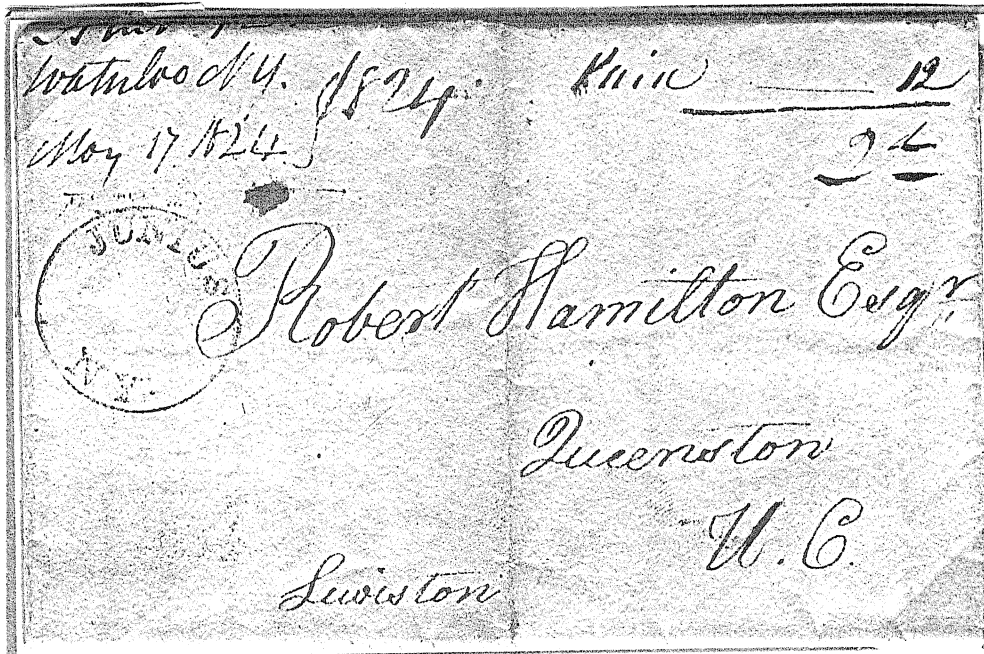 Waterloo N.Y. 1824.
May 17 1824
Paid 12
JUNIUS
N.Y.
Robert Hamilton Esqr,
Queenston
U. C.
Lewiston